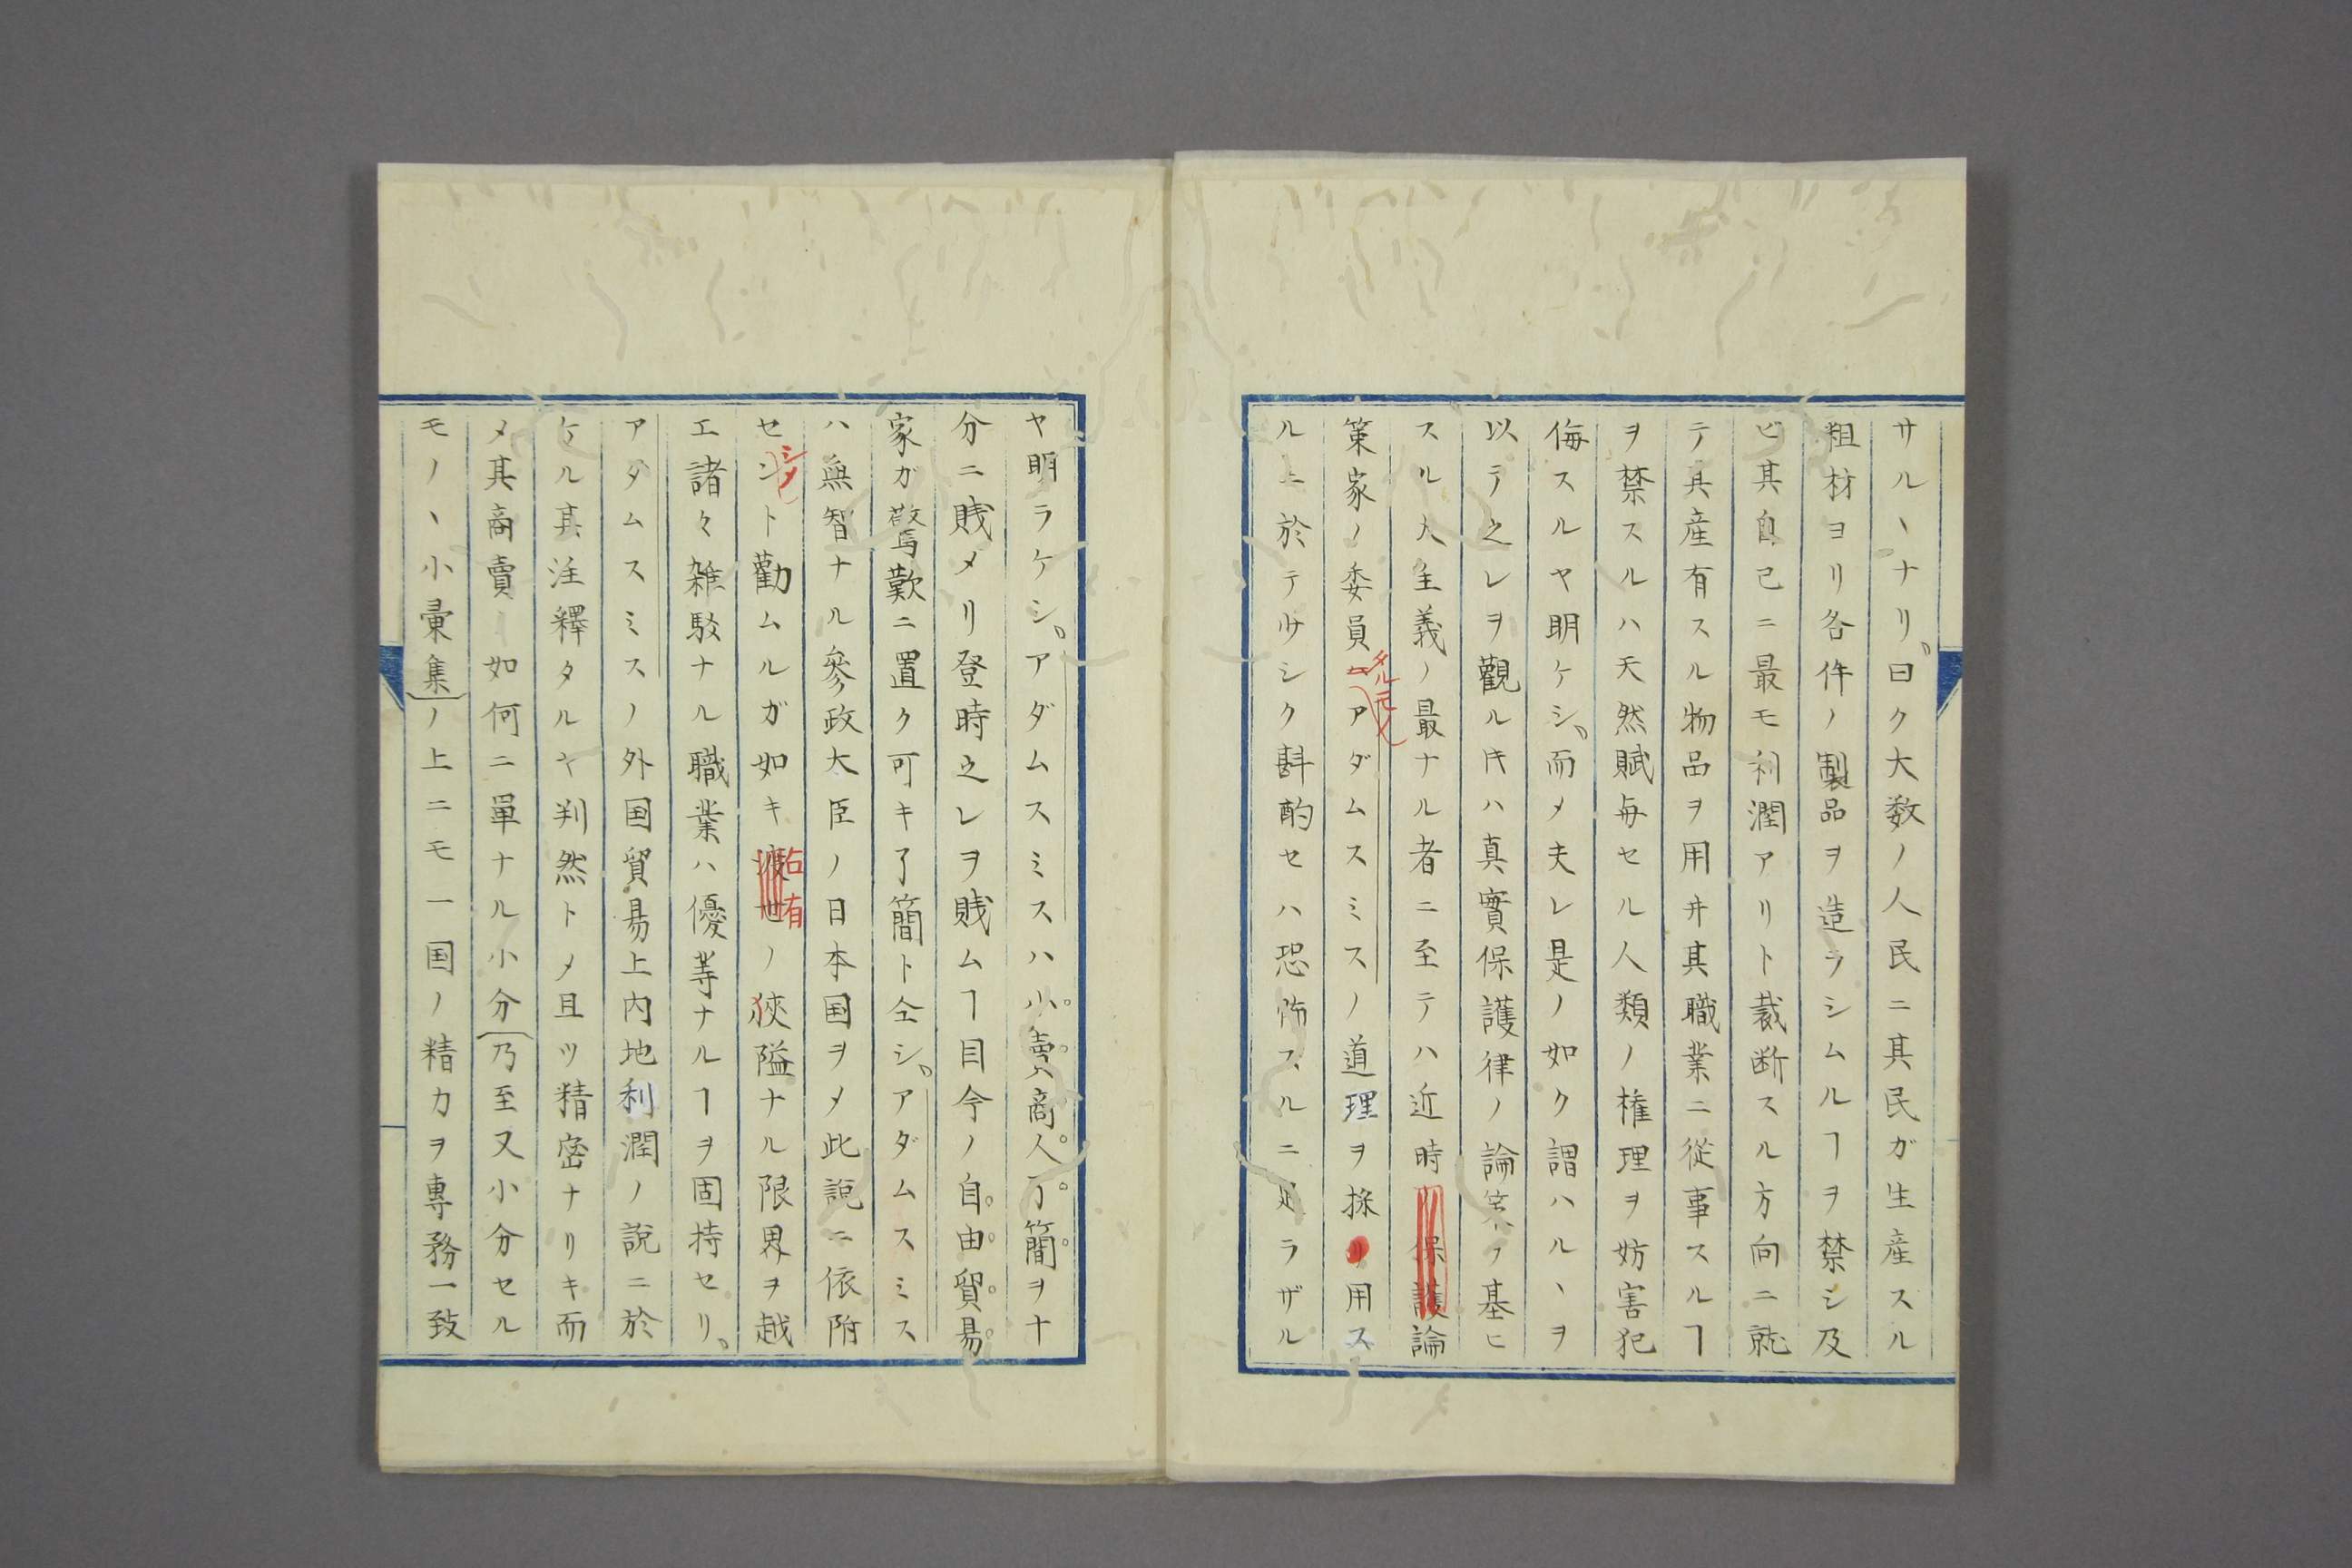 サル丶ナリ、曰ク大数ノ人民ニ其民ガ生産スル
粗材ヨリ各件ノ製品ヲ造ラシムルヿヲ禁シ及
ビ其自己ニ最モ利潤アリト裁断スル方向ニ就
テ其産有スル物品ヲ用井其職業ニ従事スルヿ
ヲ禁スルハ天然賦毎セル人類ノ権理ヲ妨害犯
侮スルヤ明ケシ、而メ夫レ是ノ如ク謂ハル丶ヲ
以テ之レヲ觀ル𪜈ハ真實保護律ノ論案ヲ基ヒ
スル大主義ノ最ナル者ニ至テハ近時ノ保護論
策家ノ委員ニタルモノアダムスミスノ道理ヲ採リ用ス
ルニ於テサシク斟酌セハ恐怖スルニ足ラザル
ヤ明ラケシ、アダムスミスハ小賣商人了簡ヲナ
分ニ賎メリ登時之レヲ賎ムヿ目今ノ自由貿易
家ガ驚歎ニ置ク可キ了簡ト仝シ、アダムスミス
ハ無智ナル參政大臣ノ日本国ヲメ此説ニ依附
センシメント勸ムルガ如キ渡世右有ノ狹隘ナル限界ヲ越
エ諸々雑駁ナル職業ハ優等ナルヿヲ固持セリ、
アダムスミスノ外国貿易上内地利潤ノ説ニ於
ケル其注釋タルヤ判然トメ且ツ精密ナリキ而
メ其商賣ー如何ニ單ナル小分(乃至又小分セル
モノ丶小彙集)ノ上ニモ一国ノ精力ヲ專務一致